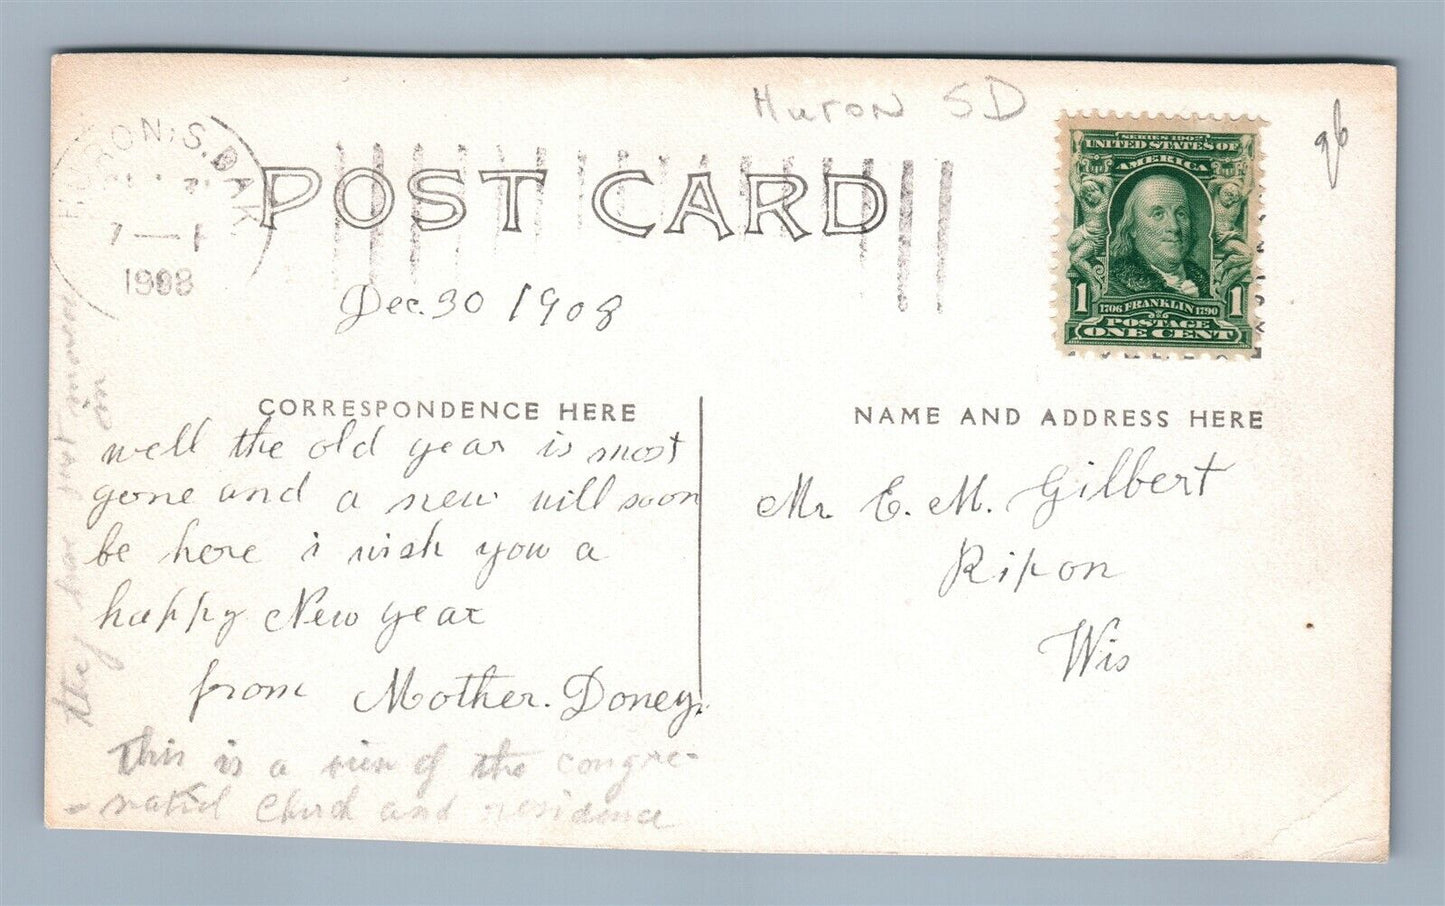 Huron SD
96
HURON, S. DAK.
7 — 1
1908
POST CARD
SERIES 1902
UNITED STATES OF
AMERICA
1 1
1706 FRANKLIN 1790
POSTAGE
ONE CENT
Dec. 30 1908
CORRESPONDENCE HERE
well the old year is most
gone and a new will soon
be here i wish you a
happy New year
from Mother. Doney.
This is a view of the congre-
- church and residence
they have just moved
in
NAME AND ADDRESS HERE
Mr E. M. Gilbert
Ripon
Wis